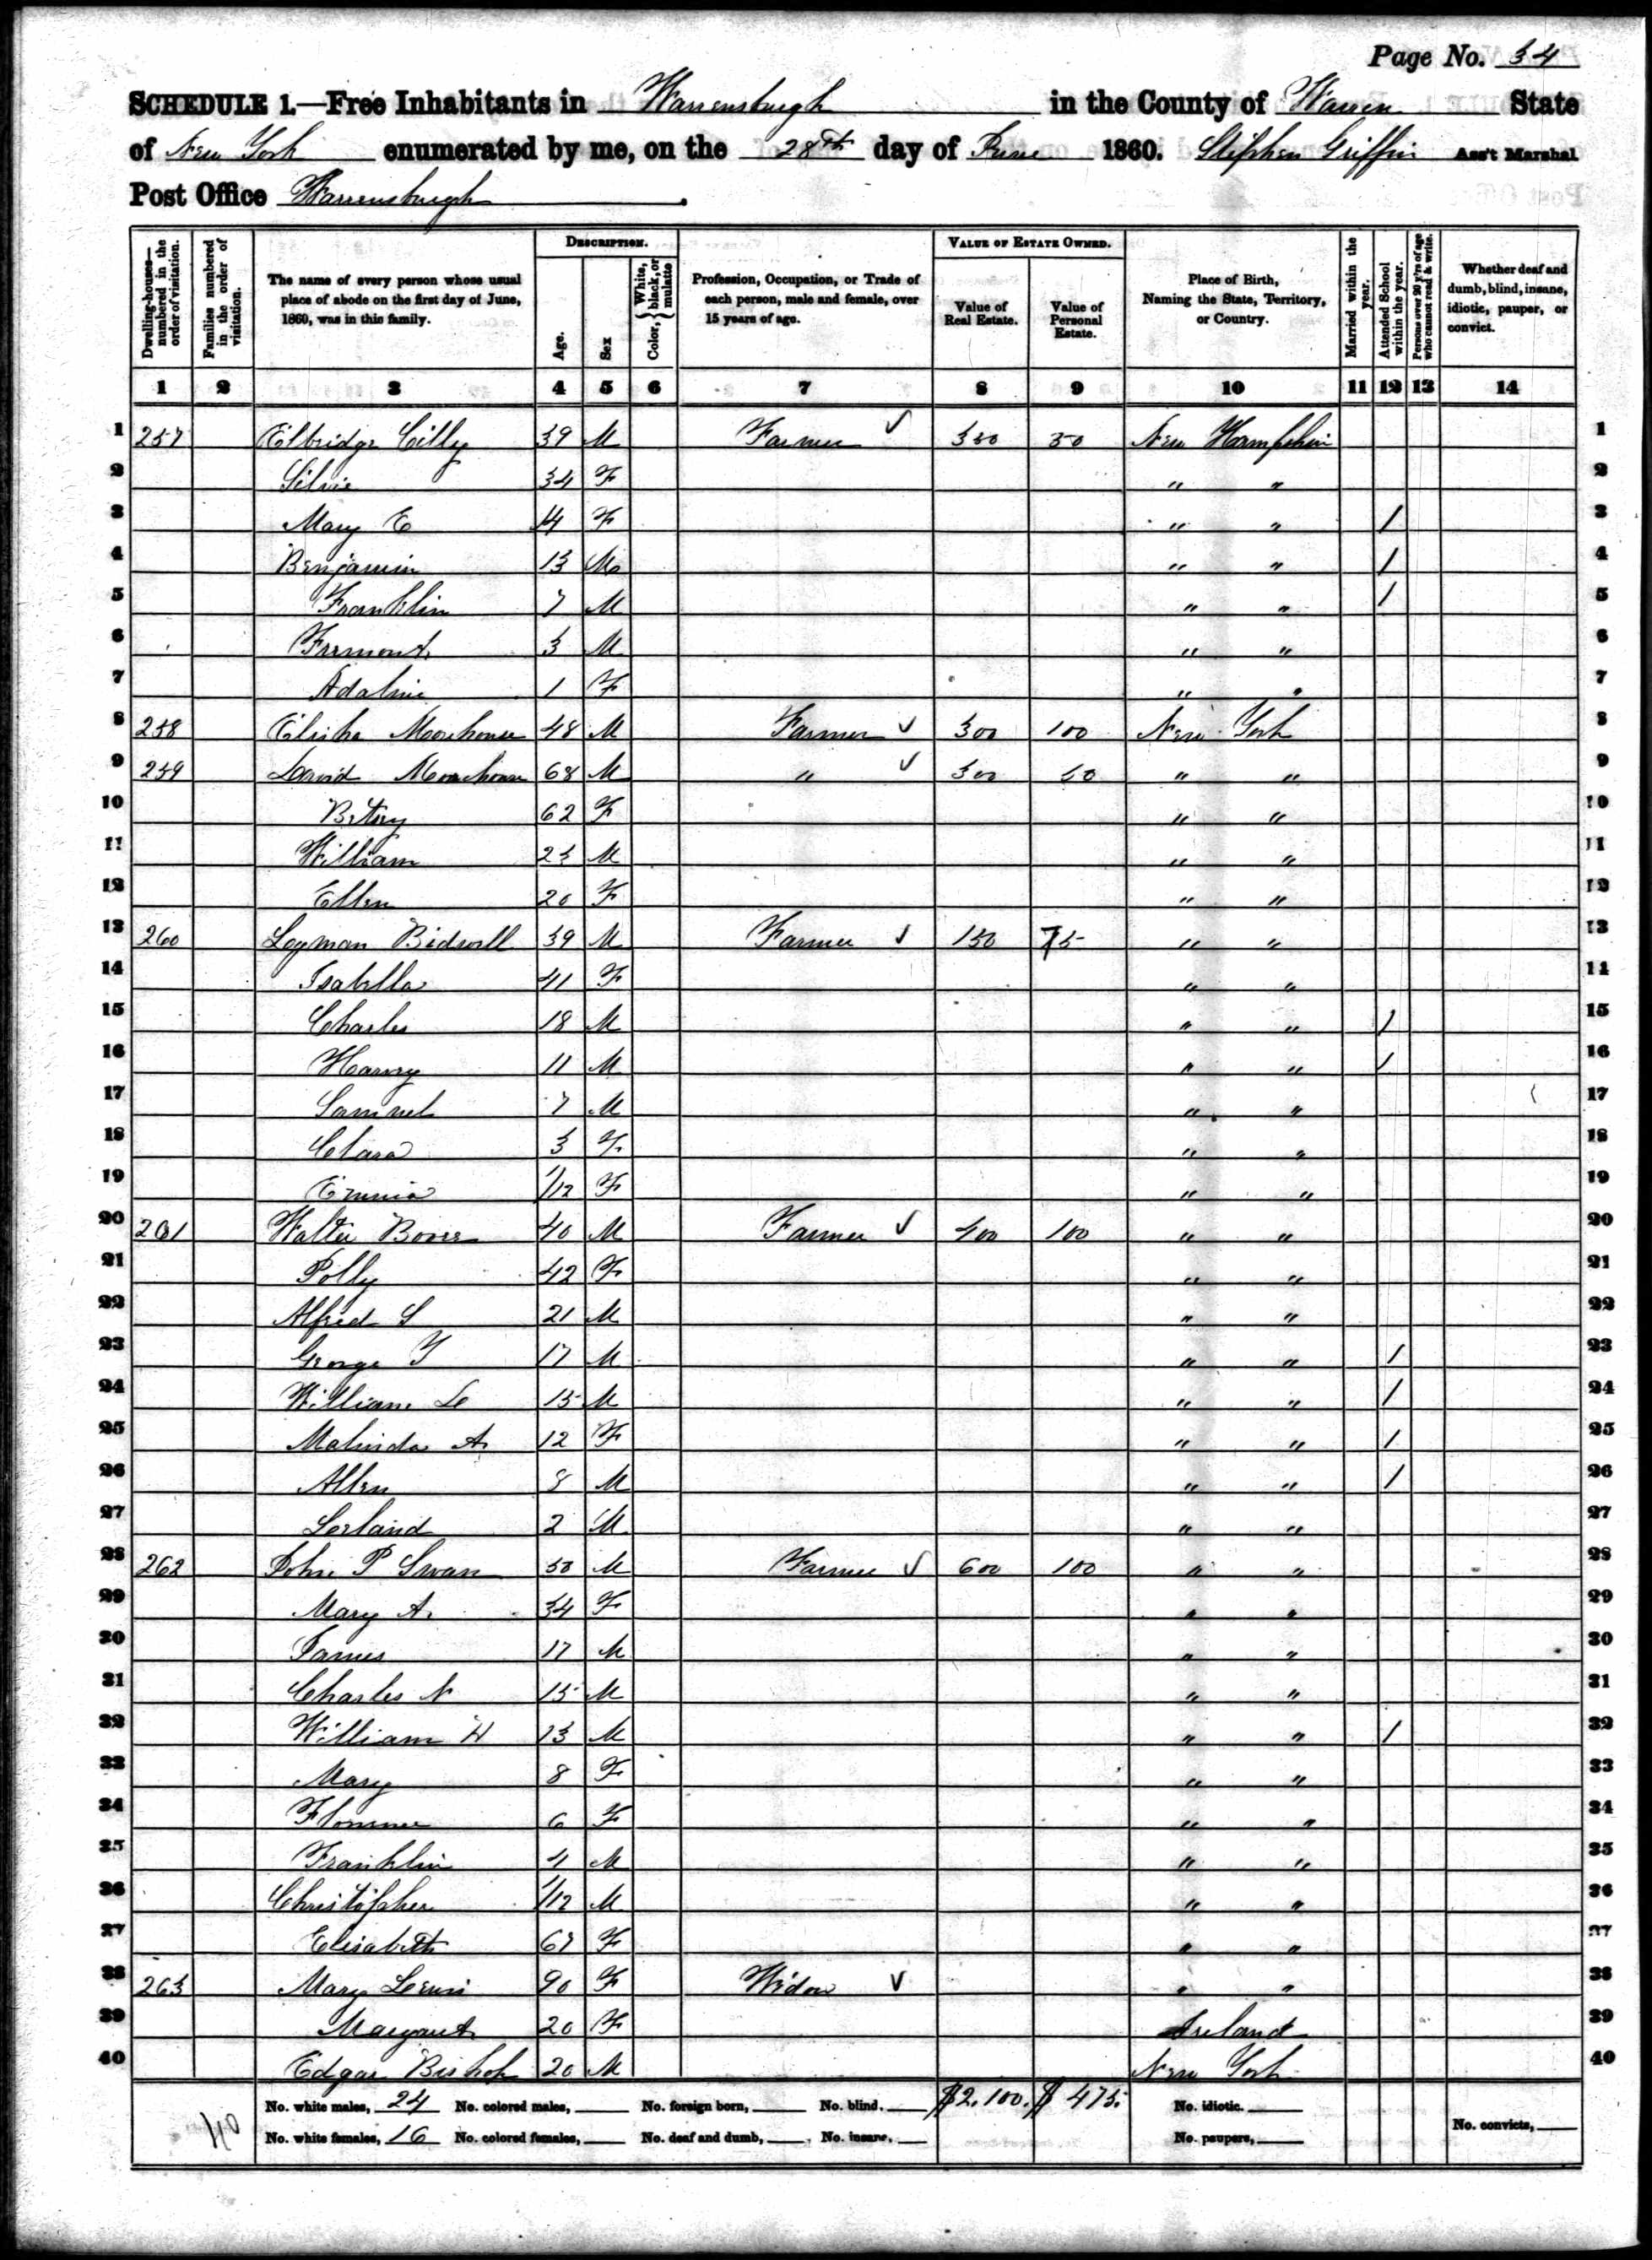 Page No. 34
SCHEDULE 1.—Free Inhabitants in Warrensburgh in the County of Warren State
of New York enumerated by me, on the 28th day of June 1860. Stephen Griffin Ass't Marshal
Post Office Warrensburgh.
Dwelling-houses—numbered in the order of visitation. Families numbered in the order of visitation. The name of every person whose usual place of abode on the first day of June, 1860, was in this family. DESCRIPTION. Age. Sex Color, {White, black, or mulatto Profession, Occupation, or Trade of each person, male and female, over 15 years of age. VALUE OF ESTATE OWNED. Value of Real Estate. Value of Personal Estate. Place of Birth, Naming the State, Territory, or Country. Married within the year. Attended School within the year. Persons over 20 y'rs of age who cannot read & write. Whether deaf and dumb, blind, insane, idiotic, pauper, or convict.
1 2 3 4 5 6 7 8 9 10 11 12 13 14
1 257 Elbridge Cilly 39 M Farmer ✓ 350 50 New Hampshire 1
2 Silvie 34 F " " 2
3 Mary E 14 F " " / 3
4 Benjamin 13 M " " / 4
5 Franklin 7 M " " / 5
6 Fremont 3 M " " 6
7 Adaline 1 F " " 7
8 258 Elisha Moorhouse 48 M Farmer ✓ 300 100 New York 8
9 259 David Moorhouse 68 M " ✓ 300 50 " " 9
10 Betsy 62 F " " 10
11 William 23 M " " 11
12 Ellen 20 F " " 12
13 260 Loyman Bidwell 39 M Farmer ✓ 150 75 " " 13
14 Isabella 41 F " " 14
15 Charles 18 M " " / 15
16 Harvey 11 M " " / 16
17 Samuel 7 M " " 17
18 Clara 3 F " " 18
19 Emma 1/12 F " " 19
20 261 Walter 40 M Farmer ✓ 400 100 " " 20
21 Polly 42 F " " 21
22 Alfred S 21 M " " 22
23 George 17 M " " / 23
24 William 15 M " " / 24
25 Malinda A. 12 F " " / 25
26 Allen 8 M " " / 26
27 2 M " " 27
28 262 John P Swan 50 M Farmer ✓ 600 100 " " 28
29 Mary A. 34 F " " 29
30 James 17 M " " 30
31 Charles N 15 M " " 31
32 William H 13 M " " / 32
33 Mary 8 F " " 33
34 6 F " " 34
35 Franklin 4 M " " 35
36 Christopher 1/12 M " " 36
37 Elisabeth 67 F " " 37
38 263 Mary 90 F Widow ✓ " " 38
39 Margaret 20 F Ireland 39
40 Edgar Bishop 20 M New York 40
No. white males, 24 No. colored males, No. foreign born, No. blind. $2,100. $475. No. idiotic.
No. white females, 16 No. colored females, No. deaf and dumb, No. insane, No. paupers, No. convicts,